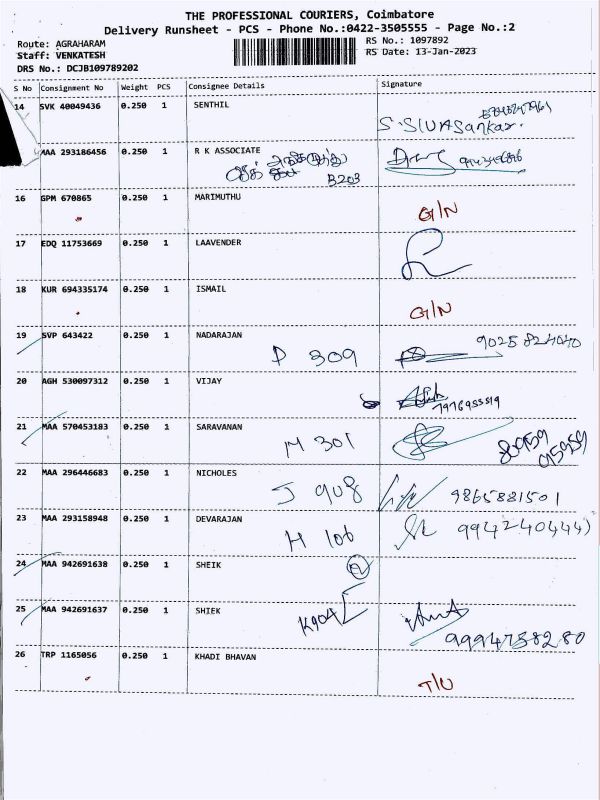 THE PROFESSIONAL COURIERS, Coimbatore
Delivery Runsheet - PCS - Phone No.:0422-3505555 - Page No.:2
Route: AGRAHARAM
RS No.: 1097892
Staff: VENKATESH
RS Date: 13-Jan-2023
DRS No.: DCJB109789202
S No Consignment No Weight PCS Consignee Details Signature
14 SVK 40049436 0.250 1 SENTHIL
S.SIVASankar.
MAA 293186456 0.250 1 R K ASSOCIATE
B203
16 GPM 670865 0.250 1 MARIMUTHU
G/N
17 EDQ 11753669 0.250 1 LAAVENDER
18 KUR 694335174 0.250 1 ISMAIL
G/N
19 SVP 643422 0.250 1 NADARAJAN
P 309 9025824040
20 AGH 530097312 0.250 1 VIJAY
21 MAA 570453183 0.250 1 SARAVANAN
M 301 89959 95959
22 MAA 296446683 0.250 1 NICHOLES
J 908 9865881501
23 MAA 293158948 0.250 1 DEVARAJAN
H 106
24 MAA 942691638 0.250 1 SHEIK
25 MAA 942691637 0.250 1 SHIEK
K904
9994758280
26 TRP 1165056 0.250 1 KHADI BHAVAN
T/U